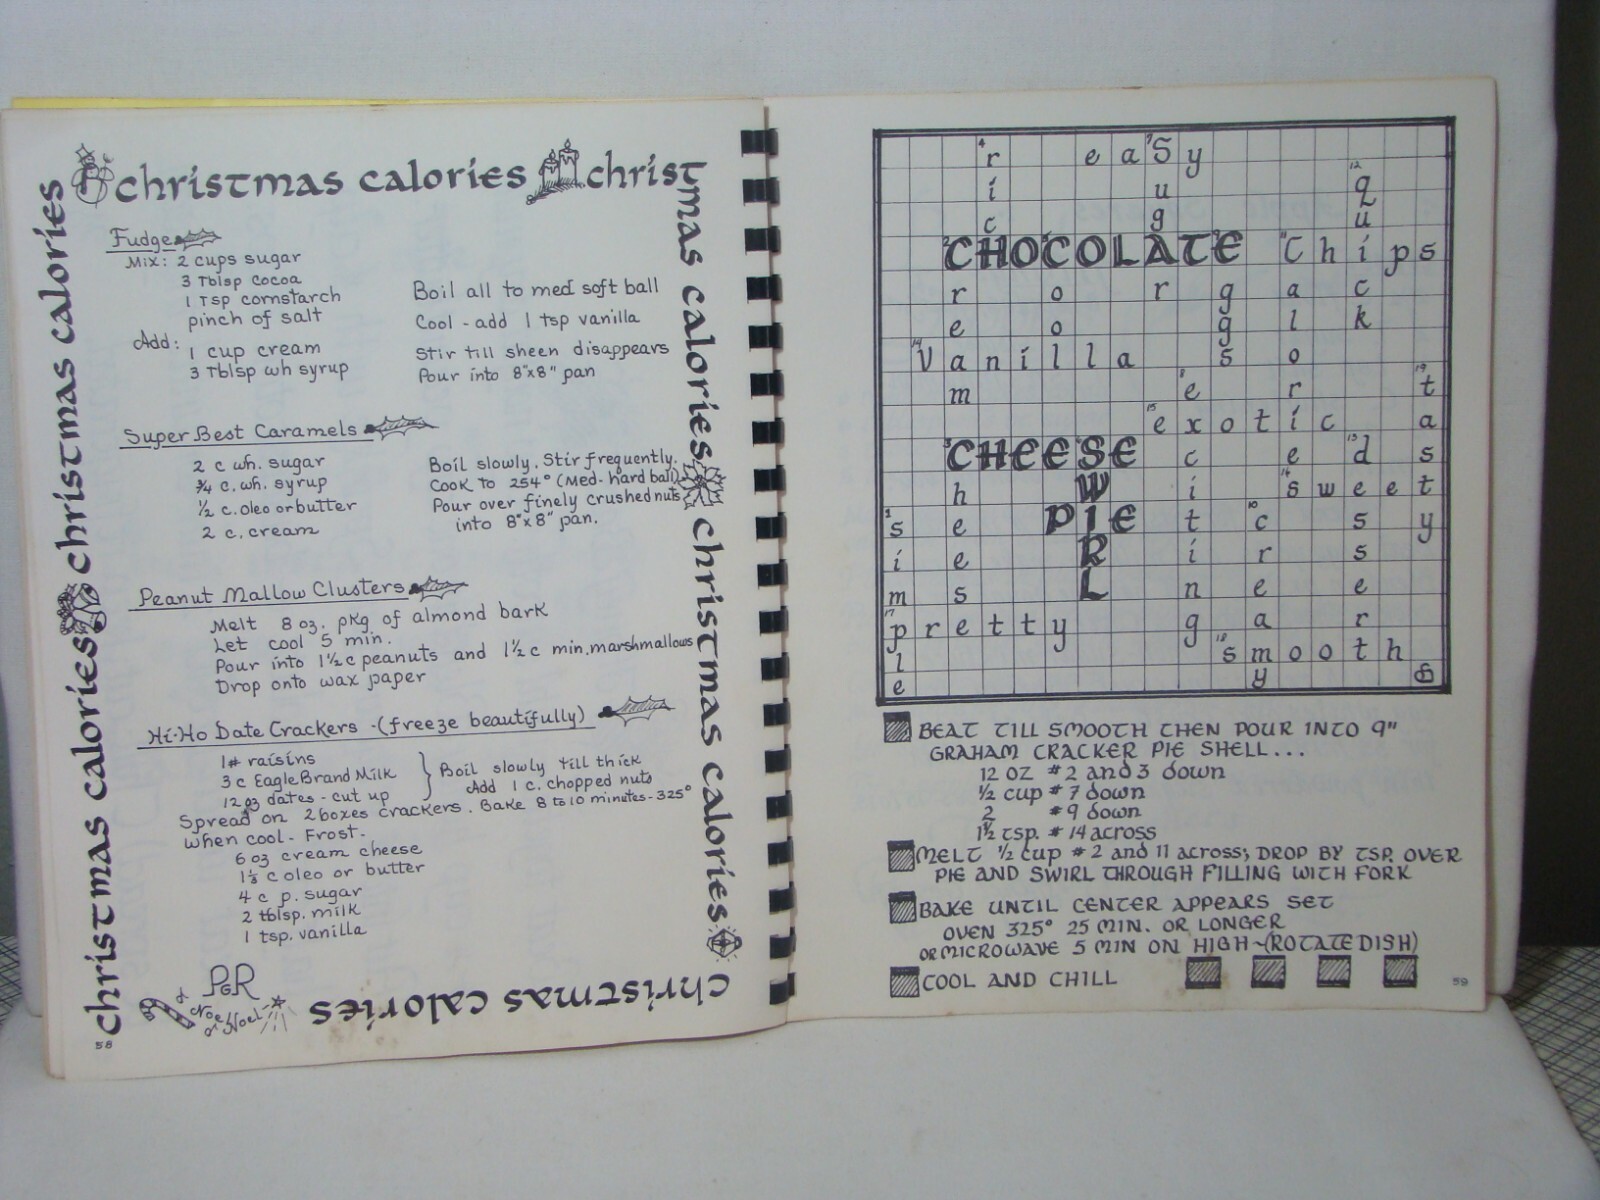 christmas calories
christmas calories
christmas calories
christmas calories
christmas calories
christmas calories
christmas calories
christmas calories
Fudge
Mix: 2 cups sugar
3 Tblsp cocoa
1 Tsp cornstarch
pinch of salt
Add:
1 cup cream
3 Tblsp wh syrup
Boil all to med soft ball
Cool - add 1 tsp vanilla
Stir till sheen disappears
Pour into 8"x8" pan
Super Best Caramels
2 c wh. sugar
3/4 c. wh. syrup
1/2 c. oleo or butter
2 c. cream
Boil slowly. Stir frequently.
Cook to 254° (Med-hard ball)
Pour over finely crushed nuts
into 8"x8" pan.
Peanut Mallow Clusters
Melt 8 oz. pkg of almond bark
Let cool 5 min.
Pour into 1 1/2 c peanuts and 1 1/2 c min. marshmallows
Drop onto wax paper
Hi-Ho Date Crackers - (freeze beautifully)
1# raisins
3 c Eagle Brand Milk
12 oz dates - cut up
Boil slowly till thick
Add 1 c. chopped nuts
Spread on 2 boxes crackers. Bake 8 to 10 minutes - 325°
When cool - Frost.
6 oz cream cheese
1 1/3 c oleo or butter
4 c p. sugar
2 tblsp. milk
1 tsp. vanilla
PGR
Noel
Noel
58
easy
rich
sugar
quick
CHOCOLATE
Chips
cream
cool
eggs
calories
vanilla
exciting
exotic
tasty
CHEESE
cheese
SWIRL
PIE
dessert
sweet
simple
creamy
pretty
smooth
BEAT TILL SMOOTH THEN POUR INTO 9"
GRAHAM CRACKER PIE SHELL...
12 OZ #2 and 3 down
1/2 cup #7 down
2 #9 down
1 1/2 tsp. #14 across
MELT 1/2 cup #2 and 11 across; DROP BY TSP. OVER
PIE AND SWIRL THROUGH FILLING WITH FORK
BAKE UNTIL CENTER APPEARS SET
OVEN 325° 25 MIN. OR LONGER
OR MICROWAVE 5 MIN ON HIGH~(ROTATE DISH)
COOL AND CHILL
59